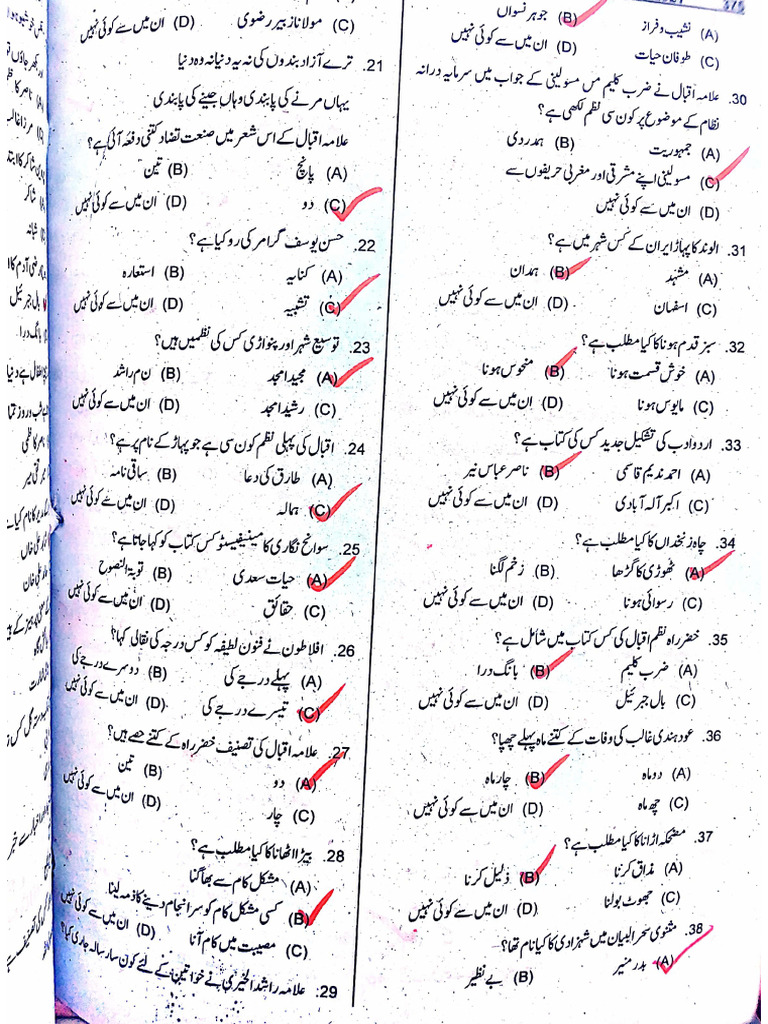 (C) مولانا زبیر رضوی (D) ان میں سے کوئی نہیں
21. ترے آزاد بندوں کی نہ یہ دنیا نہ وہ دنیا
یہاں مرنے کی پابندی وہاں جینے کی پابندی
علامہ اقبال کے اس شعر میں صنعت تضاد کتنی دفعہ آئی ہے؟
(A) پانچ (B) تین
(C) دو (D) ان میں سے کوئی نہیں
22. حسن یوسف گرامر کی رو کیا ہے؟
(A) کنایہ (B) استعارہ
(C) تشبیہ (D) ان میں سے کوئی نہیں
23. توسیع شہر اور پنواڑی کس کی نظمیں ہیں؟
(A) مجید امجد (B) ن م راشد
(C) رشید امجد (D) ان میں سے کوئی نہیں
24. اقبال کی پہلی نظم کون سی ہے جو پہاڑ کے نام پر ہے؟
(A) طارق کی دعا (B) ساقی نامہ
(C) ہمالہ (D) ان میں سے کوئی نہیں
25. سوانح نگاری کا مینیفیسٹو کس کتاب کو کہا جاتا ہے؟
(A) حیات سعدی (B) توبۃ النصوح
(C) حقائق (D) ان میں سے کوئی نہیں
26. افلاطون نے فنون لطیفہ کو کس درجہ کی نقالی کہا؟
(A) پہلے درجے کی (B) دوسرے درجے کی
(C) تیسرے درجے کی (D) ان میں سے کوئی نہیں
27. علامہ اقبال کی تصنیف خضر راہ کے کتنے حصے ہیں؟
(A) دو (B) تین
(C) چار (D) ان میں سے کوئی نہیں
28. بیڑا اٹھانا کا کیا مطلب ہے؟
(A) مشکل کام سے بھاگنا
(B) کسی مشکل کام کو سرانجام دینے کا ذمہ لینا
(C) مصیبت میں کام آنا (D) ان میں سے کوئی نہیں
29. علامہ راشد الخیری نے خواتین کے لئے کون سا رسالہ جاری کیا؟
(A) نشیب و فراز (B) جوہر نسواں
(C) طوفان حیات (D) ان میں سے کوئی نہیں
30. علامہ اقبال نے ضرب کلیم میں مسولینی کے جواب میں سرمایہ درانہ
نظام کے موضوع پر کون سی نظم لکھی ہے؟
(A) جمہوریت (B) ہمدردی
(C) مسولینی اپنے مشرقی اور مغربی حریفوں سے
(D) ان میں سے کوئی نہیں
31. الوند کا پہاڑ ایران کے کس شہر میں ہے؟
(A) مشہد (B) ہمدان
(C) اسفہان (D) ان میں سے کوئی نہیں
32. سبز قدم ہونا کا کیا مطلب ہے؟
(A) خوش قسمت ہونا (B) منحوس ہونا
(C) مایوس ہونا (D) ان میں سے کوئی نہیں
33. اردو ادب کی تشکیل جدید کس کی کتاب ہے؟
(A) احمد ندیم قاسمی (B) ناصر عباس نیر
(C) اکبر آلہ آبادی (D) ان میں سے کوئی نہیں
34. چاہ زنخداں کا کیا مطلب ہے؟
(A) ٹھوڑی کا گڑھا (B) زخم لگنا
(C) رسوائی ہونا (D) ان میں سے کوئی نہیں
35. خضر راہ نظم اقبال کی کس کتاب میں شامل ہے؟
(A) ضرب کلیم (B) بانگ درا
(C) بال جبرئیل (D) ان میں سے کوئی نہیں
36. عود ہندی غالب کی وفات کے کتنے ماہ پہلے چھپا؟
(A) دو ماہ (B) چار ماہ
(C) چھ ماہ (D) ان میں سے کوئی نہیں
37. مضحکہ اڑانا کا کیا مطلب ہے؟
(A) مذاق کرنا (B) ذلیل کرنا
(C) جھوٹ بولنا (D) ان میں سے کوئی نہیں
38. مثنوی سحر البیان میں شہزادی کا کیا نام تھا؟
(A) بدر منیر (B) بے نظیر